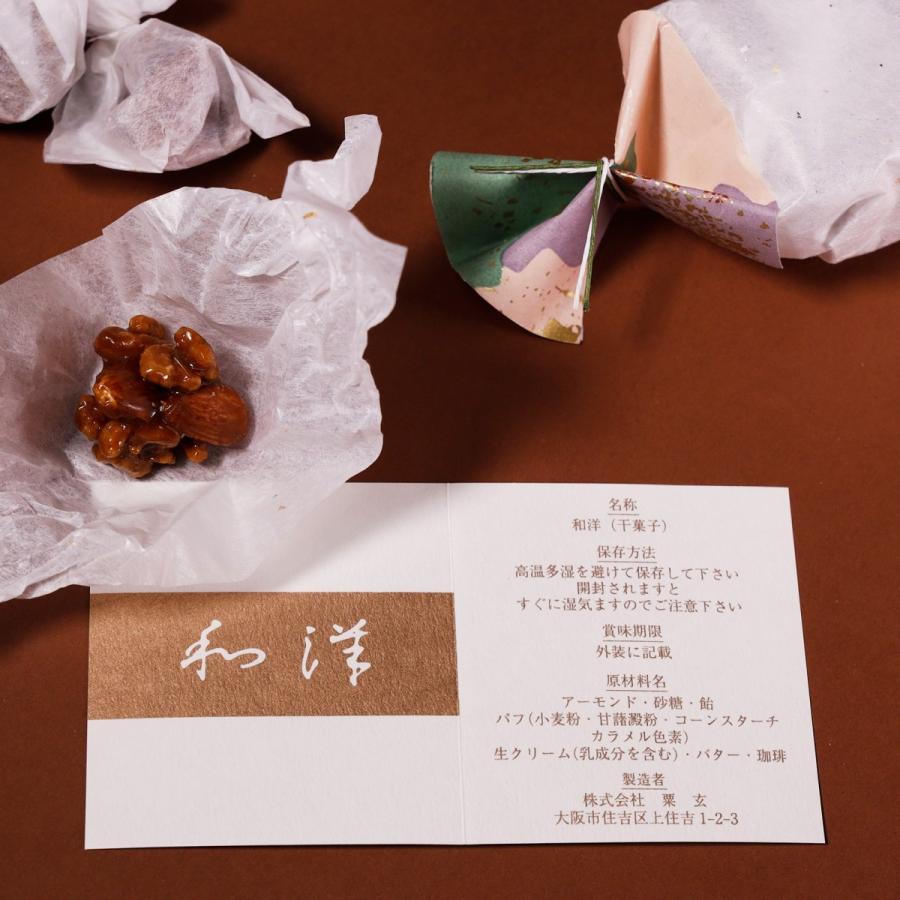 和洋
名称
和洋（干菓子）
保存方法
高温多湿を避けて保存して下さい
開封されますと
すぐに湿気ますのでご注意下さい
賞味期限
外装に記載
原材料名
アーモンド・砂糖・飴
パフ(小麦粉・甘藷澱粉・コーンスターチ
カラメル色素)
生クリーム(乳成分を含む)・バター・珈琲
製造者
株式会社　粟　玄
大阪市住吉区上住吉1-2-3